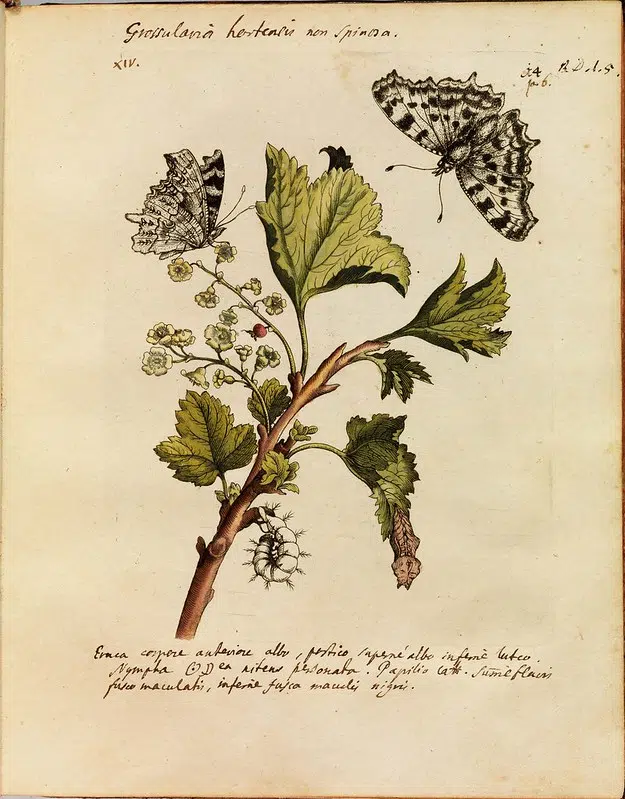 Grossularia hortensis non spinosa.
XIV.
14 R. D. 1. 5.
p. 6.
Eruca corpore anteriore albo, postico superné albo infernè luteo.
Nympha ea nitens personata. Papilio flavis
fusco maculatis, infernè fusca maculis nigris.